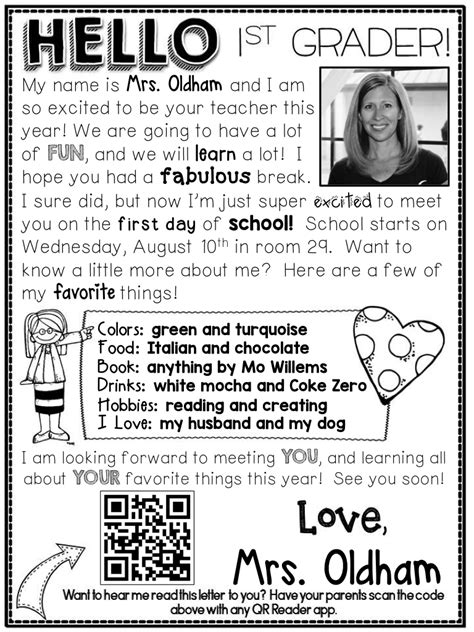 HELLO 1ST GRADER!
My name is Mrs. Oldham and I am
so excited to be your teacher this
year! We are going to have a lot
of FUN, and we will learn a lot! I
hope you had a fabulous break.
I sure did, but now I'm just super excited to meet
you on the first day of school! School starts on
Wednesday, August 10th in room 29. Want to
know a little more about me? Here are a few of
my favorite things!
Colors: green and turquoise
Food: Italian and chocolate
Book: anything by Mo Willems
Drinks: white mocha and Coke Zero
Hobbies: reading and creating
I Love: my husband and my dog
I am looking forward to meeting YOU, and learning all
about YOUR favorite things this year! See you soon!
Love,
Mrs. Oldham
Want to hear me read this letter to you? Have your parents scan the code
above with any QR Reader app.